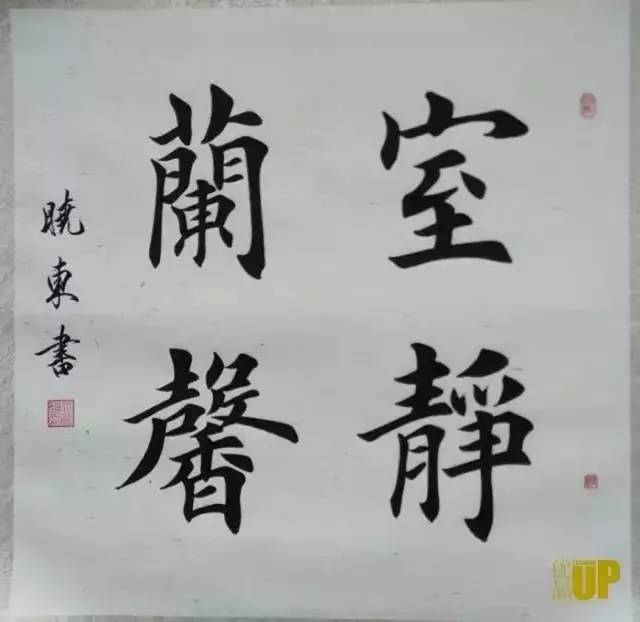 室靜
蘭馨
曉東書
优品UP